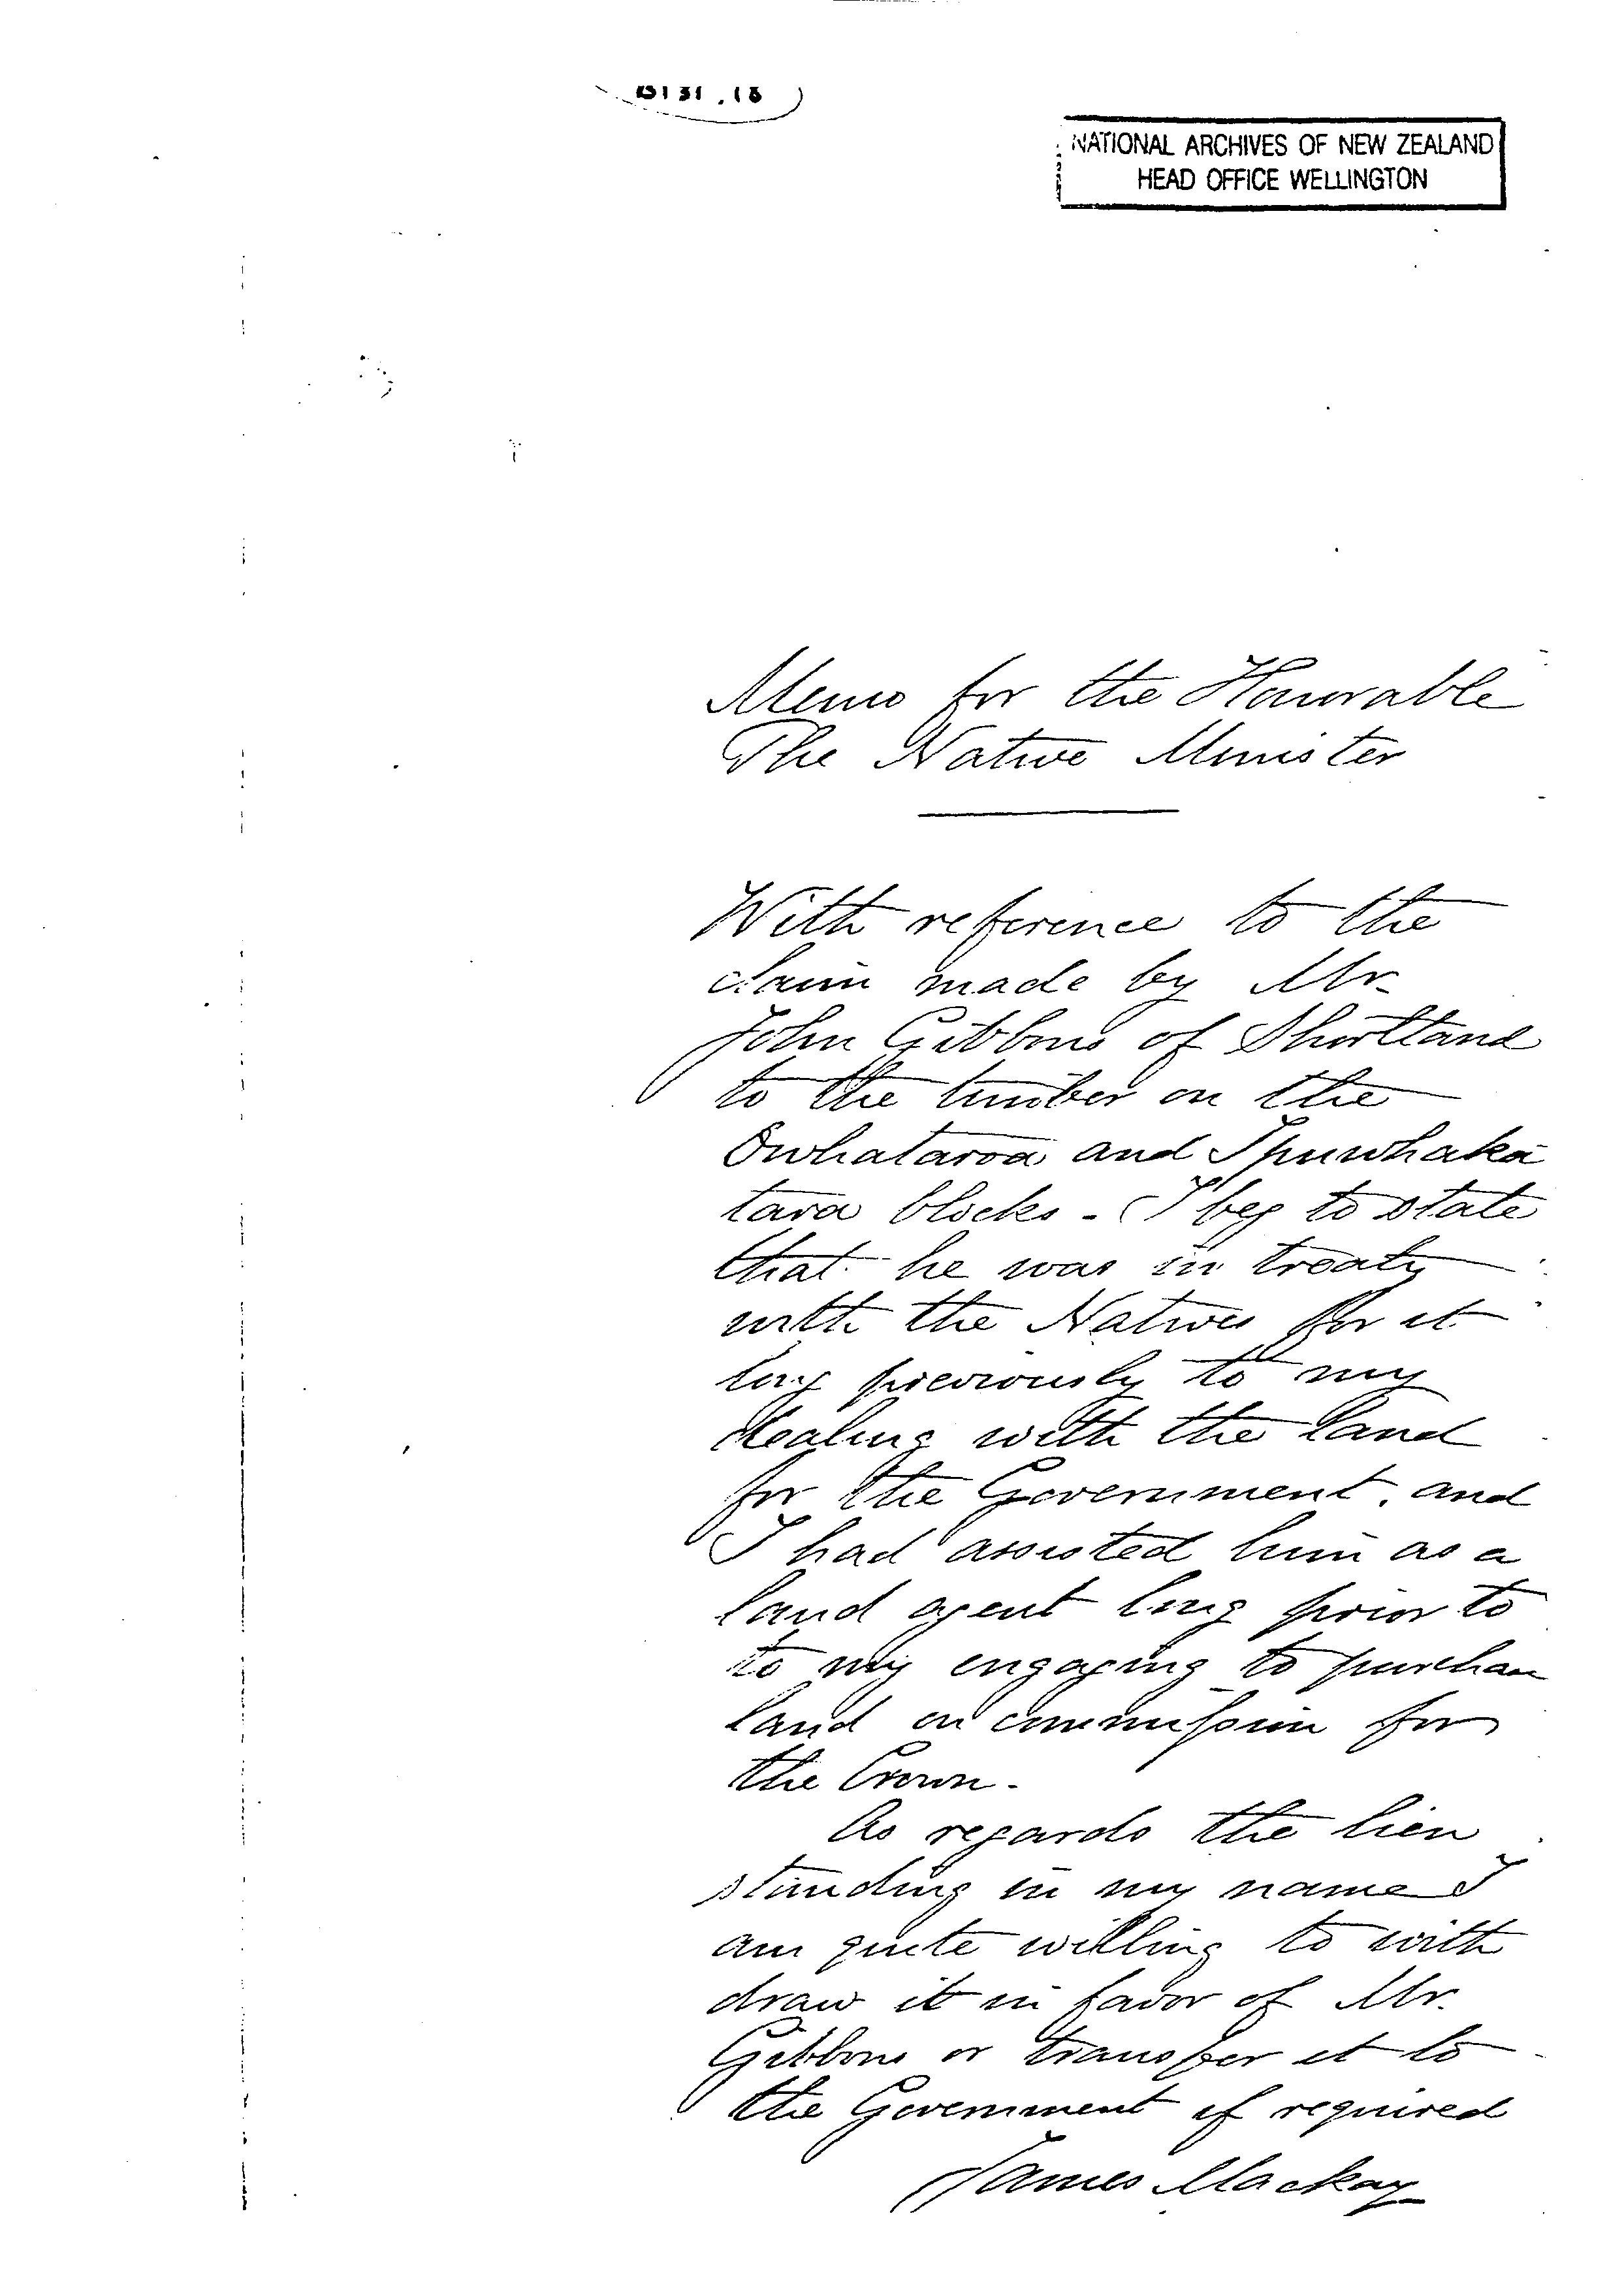 NATIONAL ARCHIVES OF NEW ZEALAND
HEAD OFFICE WELLINGTON
Memo for the Honorable
The Native Minister
With reference to the
claim made by Mr.
John Gibbons of Shortland
to the timber on the
Owhataroa and Ipuwhaka
tara blocks - I beg to state
that he was in treaty
with the Natives for it
long previously to my
dealing with the land
for the Government, and
I had assisted him as a
land agent long prior to
to my engaging to purchase
land on commission for
the Crown.
As regards the lien
standing in my name I
am quite willing to with
draw it in favor of Mr.
Gibbons or transfer it to
the Government if required
James Mackay